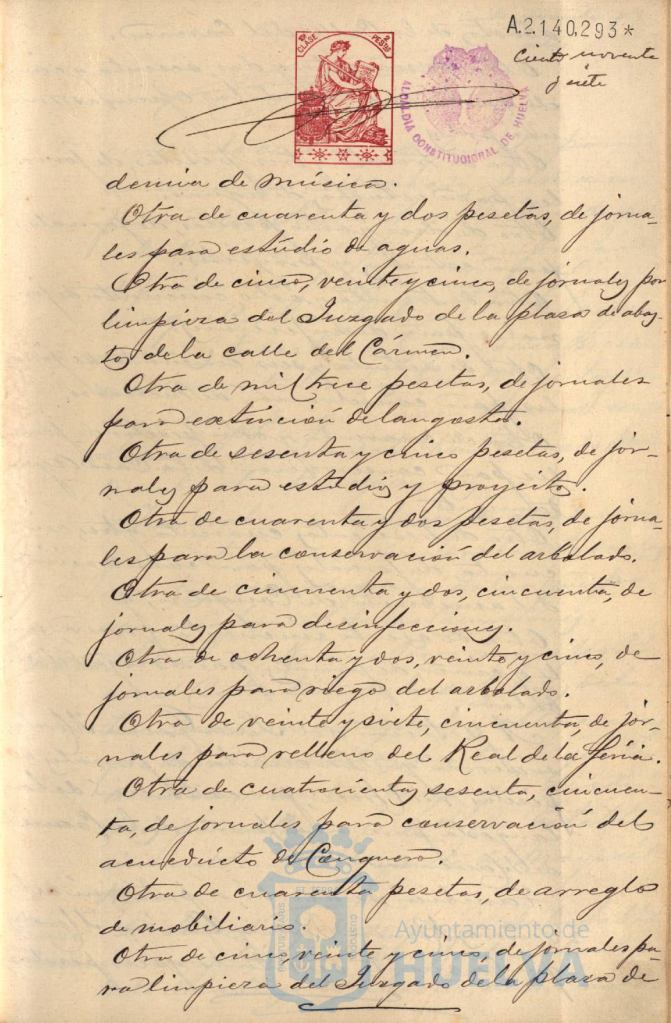 A.2.140,293*
Ciento noventa
y siete
10ª CLASE 2 PESETAS
ALCALDIA CONSTITUCIONAL DE HUELVA
demia de Música.
Otra de cuarenta y dos pesetas, de jorna-
les para estudio de aguas.
Otra de cinco, veinte y cinco, de jornales por
limpieza del Juzgado de la plaza de abas-
tos de la calle del Cármen.
Otra de mil trece pesetas, de jornales
para extinción de langosta.
Otra de sesenta y cinco pesetas, de jor-
nales para estudios y proyectos.
Otra de cuarenta y dos pesetas, de jorna-
les para la conservación del arbolado.
Otra de cincuenta y dos, cincuenta, de
jornales para desinfecciones.
Otra de ochenta y dos, veinte y cinco, de
jornales para riego del arbolado.
Otra de veinte y siete, cincuenta, de jor-
nales para relleno del Real de la féria.
Otra de cuatrocientas sesenta, cincuen-
ta, de jornales para conservación del
acueducto de Conquero.
Otra de cuarenta pesetas, de arreglo
de mobiliario.
Otra de cinco, veinte y cinco, de jornales pa-
ra limpieza del Juzgado de la plaza de
Ayuntamiento de
HUELVA